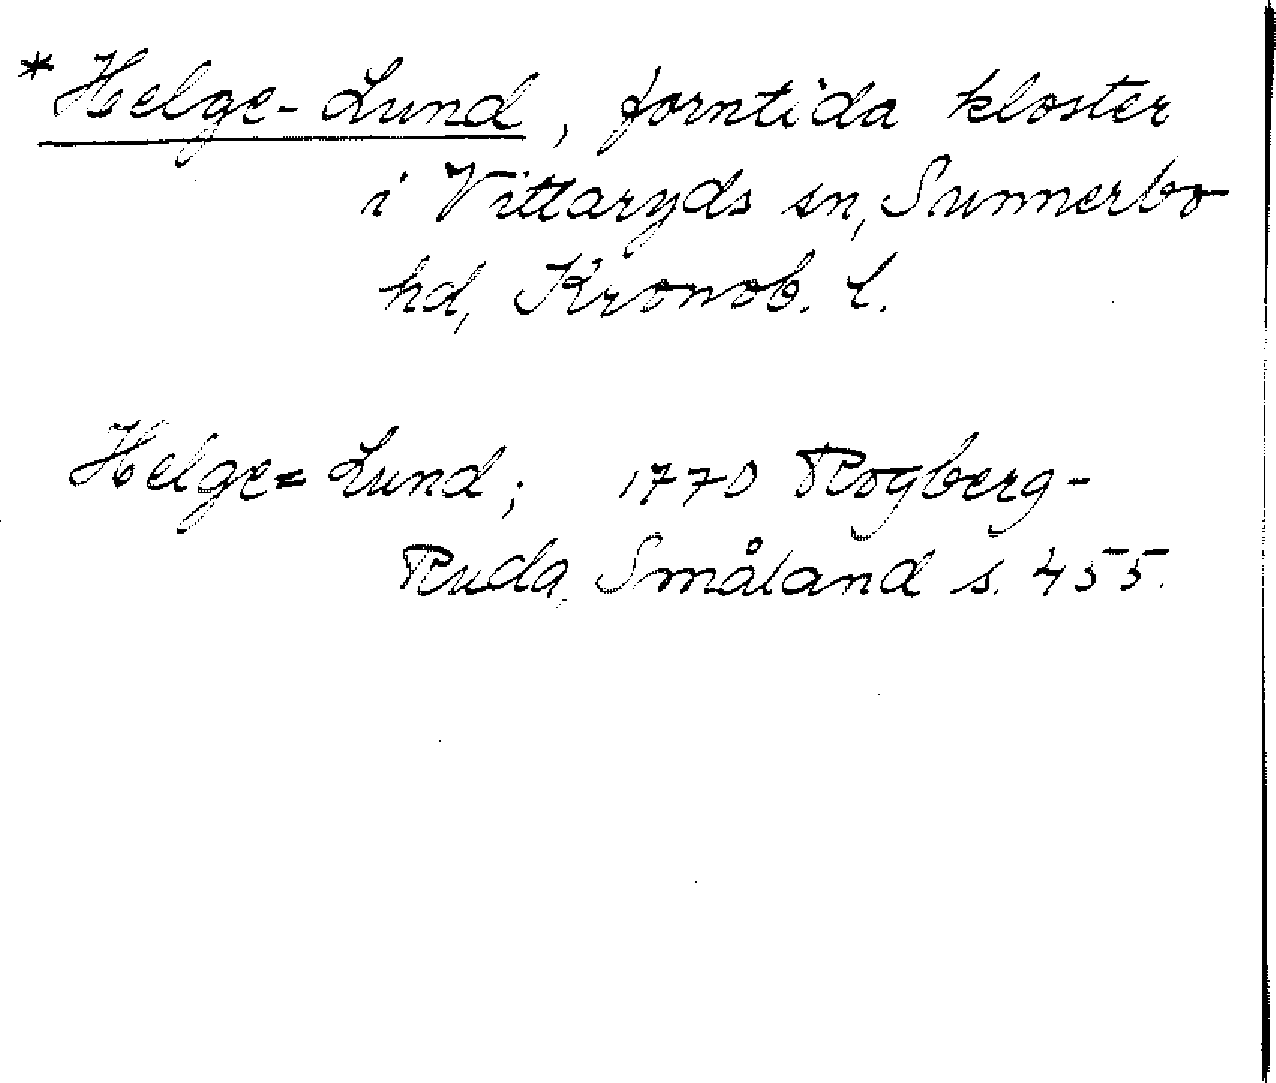 * Helge-Lund, forntida kloster
i Vittaryds sn, Sunnerbo
hd, Kronob. l.
Helge=Lund; 1770 Rogberg-
Ruda, Småland s. 455.